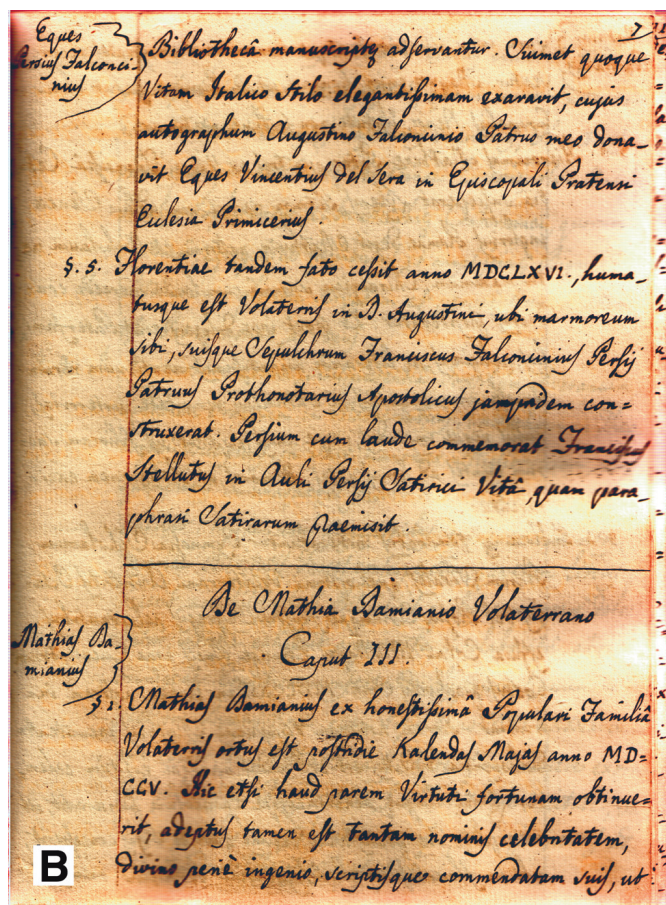 7
Eques
Persius Falconci-
nius
Bibliothecâ manuscriptę adservantur. Suimet quoque
Vitam Italico Stilo elegantissimam exaravit, cujus
autographum Augustino Falconcinio Patruo meo dona-
vit Eques Vincentius Del Sera in Episcopali Pratensi
Eclesia Primicerius.
§. 5. Florentiae tandem fato cessit anno MDCLXVI., huma-
tusque est Volaterris in D. Augustini, ubi marmoreum
sibi, suisque Sepulchrum Franciscus Falconcinius Persij
Patruus Prothonotarius Apostolicus jampridem con=
struxerat. Persium cum laude commemorat Franciscus
Stellutus in Auli Persij Satirici Vitâ, quam para-
phrasi Satirarum praemisit.
De Mathia Damianio Volaterrano
Caput III.
Mathias Da-
mianius
§. 1 Mathias Damianius ex honestissimâ Populari Familiâ
Volaterris ortus est postridie Kalendas Majas anno MD=
CCV. Hic etsi haud parem Virtuti fortunam obtinue-
rit, adeptus tamen est tantam nominis celebritatem,
divino penè ingenio, scriptisque commendatam suis, ut
B